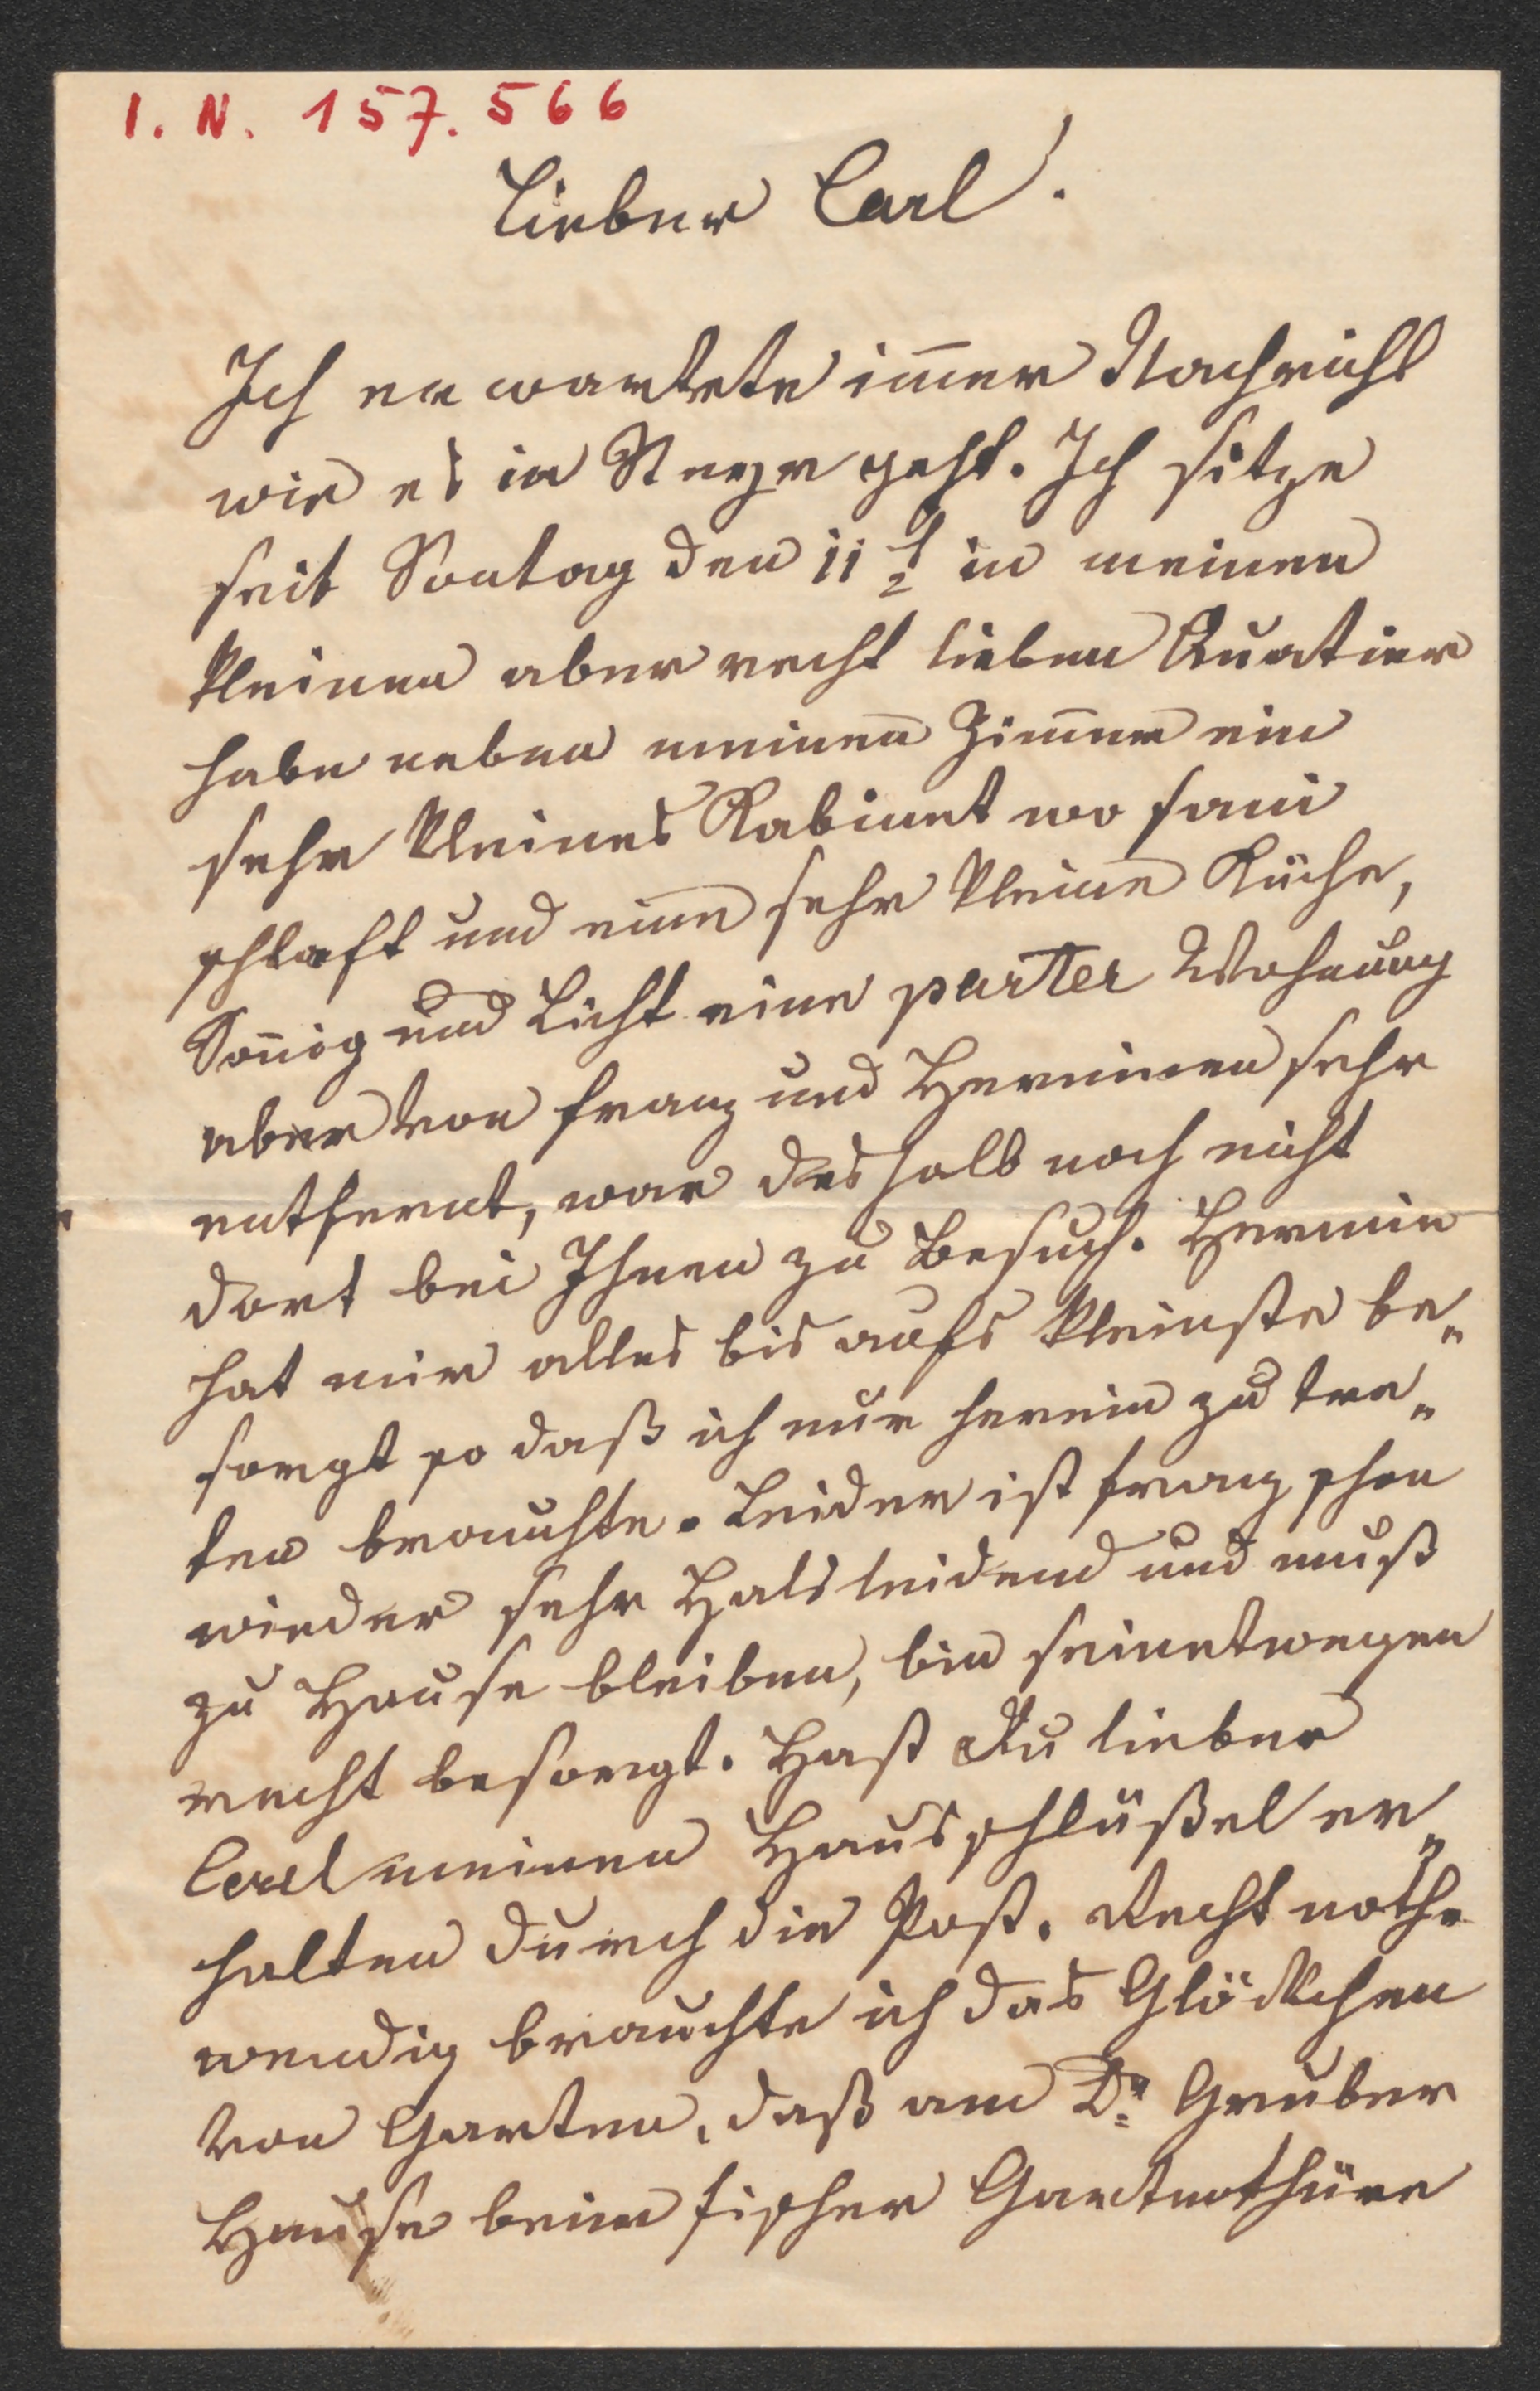 I. N. 157.566
Lieber Carl!
Ich erwartete im̄er Nachricht
wie es in Steyr geht. Ich sitze
seit Sontag den 11/2 in meinen
kleinen aber recht lieben Quatier
habe neben meinen Zim̄er ein
sehr kleines Kabinet wo
schlaft und eine sehr kleine Küche,
Son̄ig und Licht eine parter Wohnung
aber von Franz und Herminen sehr
entfernt, war deshalb noch nicht
dort bei Ihnen zu Besuch. Hermin
hat mir alles bis aufs kleinste be„
sorgt so daß ich nur herein zu tre„
ten brauchte. Leider ist Franz schon
wieder sehr Halsleidend und muß
zu Hause bleiben, bin seinetwegen
recht besorgt. Hast Du lieber
Carl meinen Hausschlüßel er„
halten durch die Post. Recht noth„
wendig brauchte ich das Glöckchen
von Garten, daß am Dr Gruber
Hause beim Fischer Gartenthüre